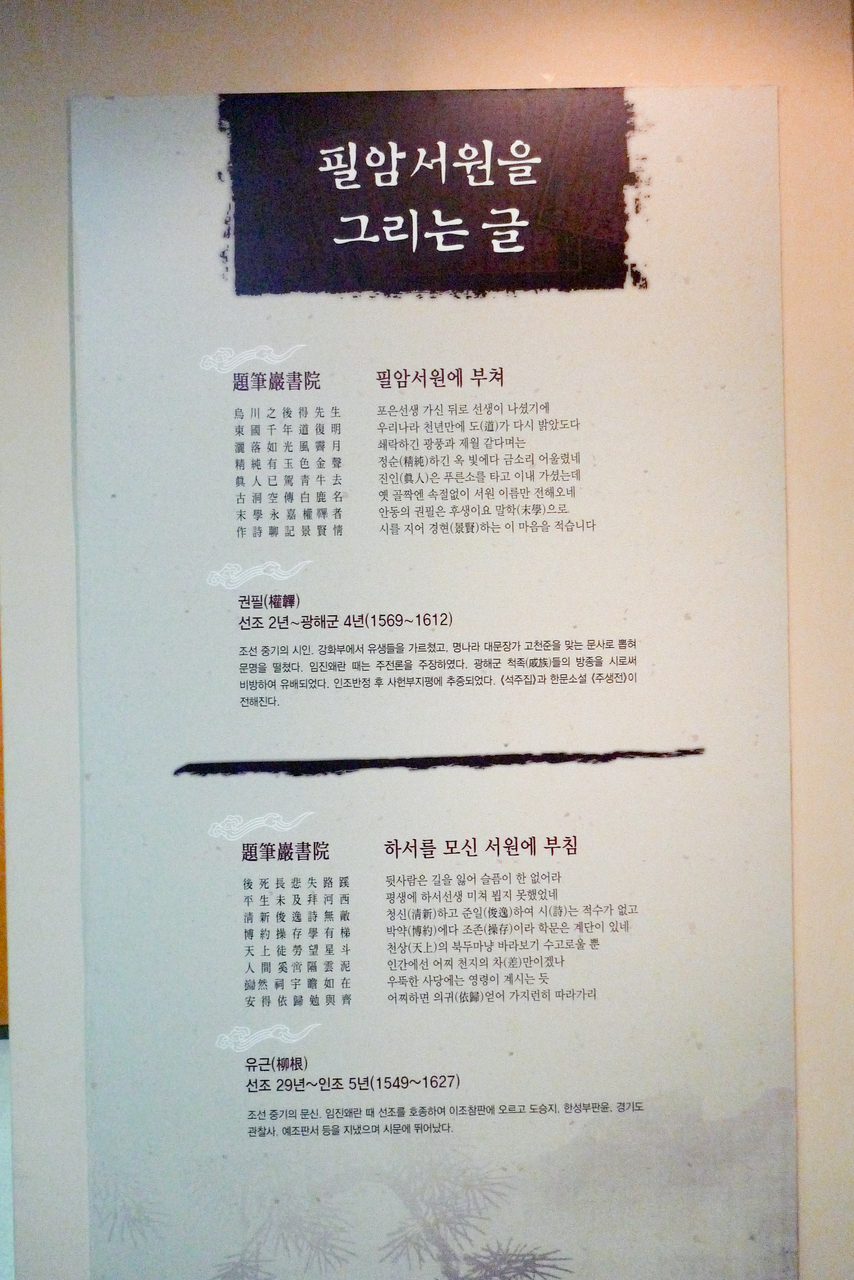 필암서원을
그리는 글
題筆巖書院
필암서원에 부쳐
烏川之後得先生
東國千年道復明
灑落如光風霽月
精純有玉色金聲
眞人已駕靑牛去
古洞空傳白鹿名
末學永嘉權韠者
作詩聊記景賢情
포은선생 가신 뒤로 선생이 나셨기에
우리나라 천년만에 도(道)가 다시 밝았도다
쇄락하긴 광풍과 제월 같다며는
정순(精純)하긴 옥 빛에다 금소리 어울렸네
진인(眞人)은 푸른소를 타고 이내 가셨는데
옛 골짝엔 속절없이 서원 이름만 전해오네
안동의 권필은 후생이요 말학(末學)으로
시를 지어 경현(景賢)하는 이 마음을 적습니다
권필(權韠)
선조 2년~광해군 4년(1569~1612)
조선 중기의 시인. 강화부에서 유생들을 가르쳤고, 명나라 대문장가 고천준을 맞는 문사로 뽑혀
문명을 떨쳤다. 임진왜란 때는 주전론을 주장하였다. 광해군 척족(戚族)들의 방종을 시로써
비방하여 유배되었다. 인조반정 후 사헌부지평에 추증되었다. 《석주집》과 한문소설 《주생전》이
전해진다.
題筆巖書院
하서를 모신 서원에 부침
後死長悲失路蹊
平生未及拜河西
清新俊逸詩無敵
博約操存學有梯
天上徒勞望星斗
人間奚啻隔雲泥
巋然祠宇瞻如在
安得依歸勉與齊
뒷사람은 길을 잃어 슬픔이 한 없어라
평생에 하서선생 미쳐 뵙지 못했었네
청신(清新)하고 준일(俊逸)하여 시(詩)는 적수가 없고
박약(博約)에다 조존(操存)이라 학문은 계단이 있네
천상(天上)의 북두마냥 바라보기 수고로울 뿐
인간에선 어찌 천지의 차(差)만이겠나
우뚝한 사당에는 영령이 계시는 듯
어찌하면 의귀(依歸)얻어 가지런히 따라가리
유근(柳根)
선조 29년~인조 5년(1549~1627)
조선 중기의 문신. 임진왜란 때 선조를 호종하여 이조참판에 오르고 도승지, 한성부판윤, 경기도
관찰사, 예조판서 등을 지냈으며 시문에 뛰어났다.